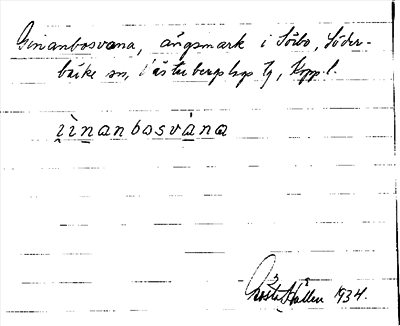 Ginanbosvana, ängsmark i Sörbo, Söder-
bärke sn, Västerbergslags tg, Kopp. l.
i̯ìnanbosvàna
Gösta Hallen 1934.